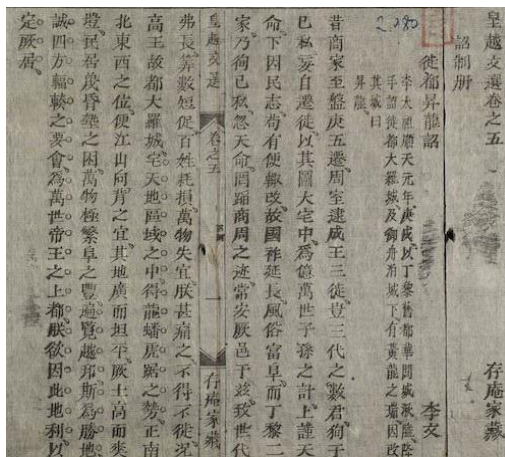 皇越文選卷之五
詔制册 存庵家藏
2,280
徙都昇龍詔 李文
李太祖順天元年庚戌以丁黎舊都華閭城湫隘降
手詔徙都大羅城及御舟泊城下有黃龍之瑞因改
其城曰
昇龍
昔商家至盤庚五遷周室逮成王三徙豈三代之數君徇于
己私妄自遷徙以其圖大宅中爲億萬世子孫之計上謹天
命下因民志苟有便輒改故國祚延長風俗富阜而丁黎二
家乃徇己私忽天命罔蹈商周之迹常安厥邑于兹致世代
皇越文選 卷之五 一 存庵家藏
弗長算數短促百姓耗損萬物失宜朕甚痛之不得不徙况
高王故都大羅城宅天地區域之中得龍蟠虎踞之勢正南
北東西之位便江山向背之宜其地廣而坦平厥土高而爽
塏民居蔑昏墊之困萬物極繁阜之豐遍覽越邦斯爲勝地
誠四方輻輳之要會爲萬世帝王之上都朕欲因此地利以
定厥居